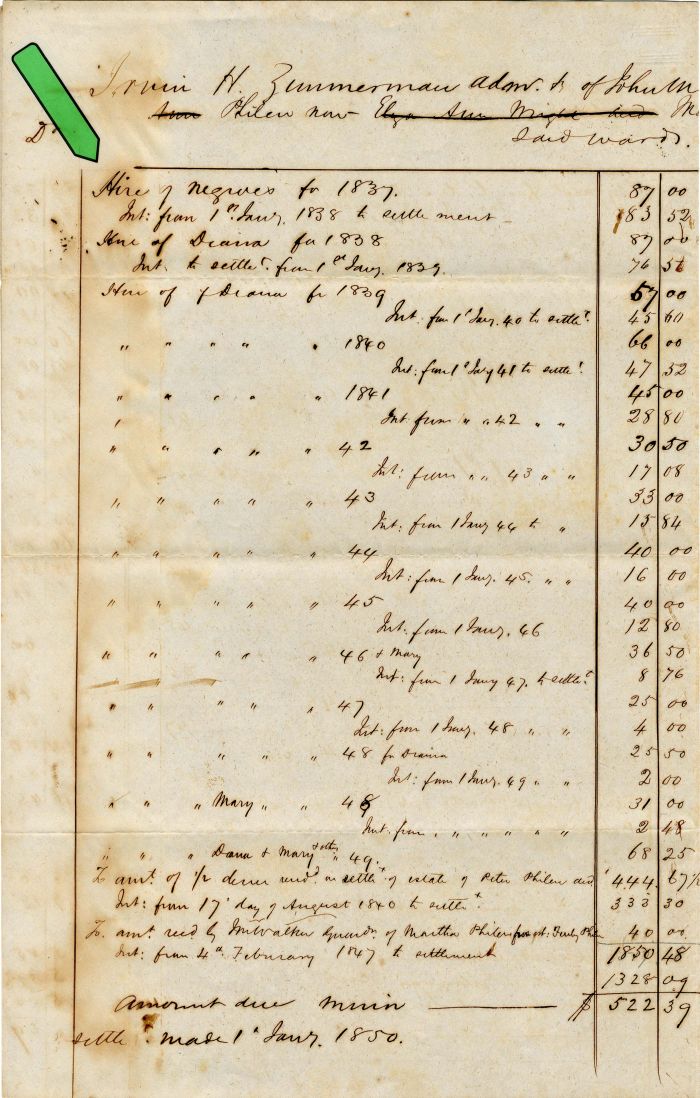 Irvin H. Zimmerman admr. &c of John M
Ann Philen now Eliza Ann Wright decd
Dr said wards.
Hire of negroes for 1837. 87 00
Int: from 1st Jany. 1838 to settlement 83 52
Hire of Diana for 1838 87 00
Int. to settlt. from 1st Jany. 1839. 76 56
Hire of Diana for 1839 57 00
Int. from 1st Jany. 40 to settlt. 45 60
" " " " " 1840 66 00
Int: from 1st Jany 41 to settlt. 47 52
" " " " " 1841 45 00
Int from " " 42 " " 28 80
" " " " " 42 30 50
Int: from " " 43 " " 17 08
" " " " " 43 33 00
Int: from 1 Jany 44 to " 15 84
" " " " " 44 40 00
Int: from 1 Jany. 45. " " 16 00
" " " " " 45 40 00
Int: from 1 Jany. 46 12 80
" " " " " 46 & Mary 36 50
Int: from 1 Jany 47. to settlt. 8 76
" " " " " 47 25 00
Int: from 1 Jany. 48 " " 4 00
" " " " " 48 for Diana 25 50
Int: from 1 Jany. 49 " " 2 00
" " " Mary " " 49 31 00
Int: from " " " " " " 2 48
" " " Dana & Mary & oth " 49. 68 25
To amt. of 1/2 recd. in settlt of estate of Peter Philen decd. 444 67 1/2
Int: from 17th day of August 1840 to settlt 333 30
To amt. recd by Walker Guardn. of Martha Philen 40 00
Int: from 4th February 1847 to settlement 1850 48
1328 09
Amount due $ 522 39
settlt. made 1st Jany. 1850.